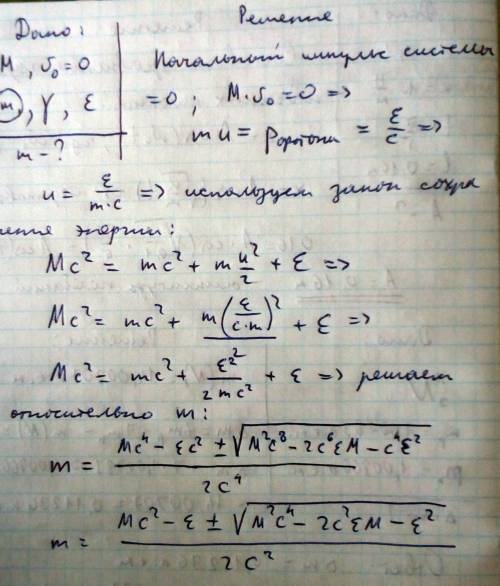 Дано:
Решение
M, υ₀ = 0
m, γ, ε
m - ?
Начальный импульс системы
= 0 ; M·υ₀ = 0 =>
mu = Pфотона = ε/c =>
u = ε/(m·c) => используем закон сохра
нения энергии:
Mc² = mc² + m u²/2 + ε =>
Mc² = mc² + m(ε/(c·m))² + ε =>
Mc² = mc² + ε²/(2mc²) + ε => решаем
относительно m:
m = (Mc⁴ - εc² ± √(M²c⁸ - 2c⁶εM - c⁴ε²))/(2c⁴)
m = (Mc² - ε ± √(M²c⁴ - 2c²εM - ε²))/(2c²)